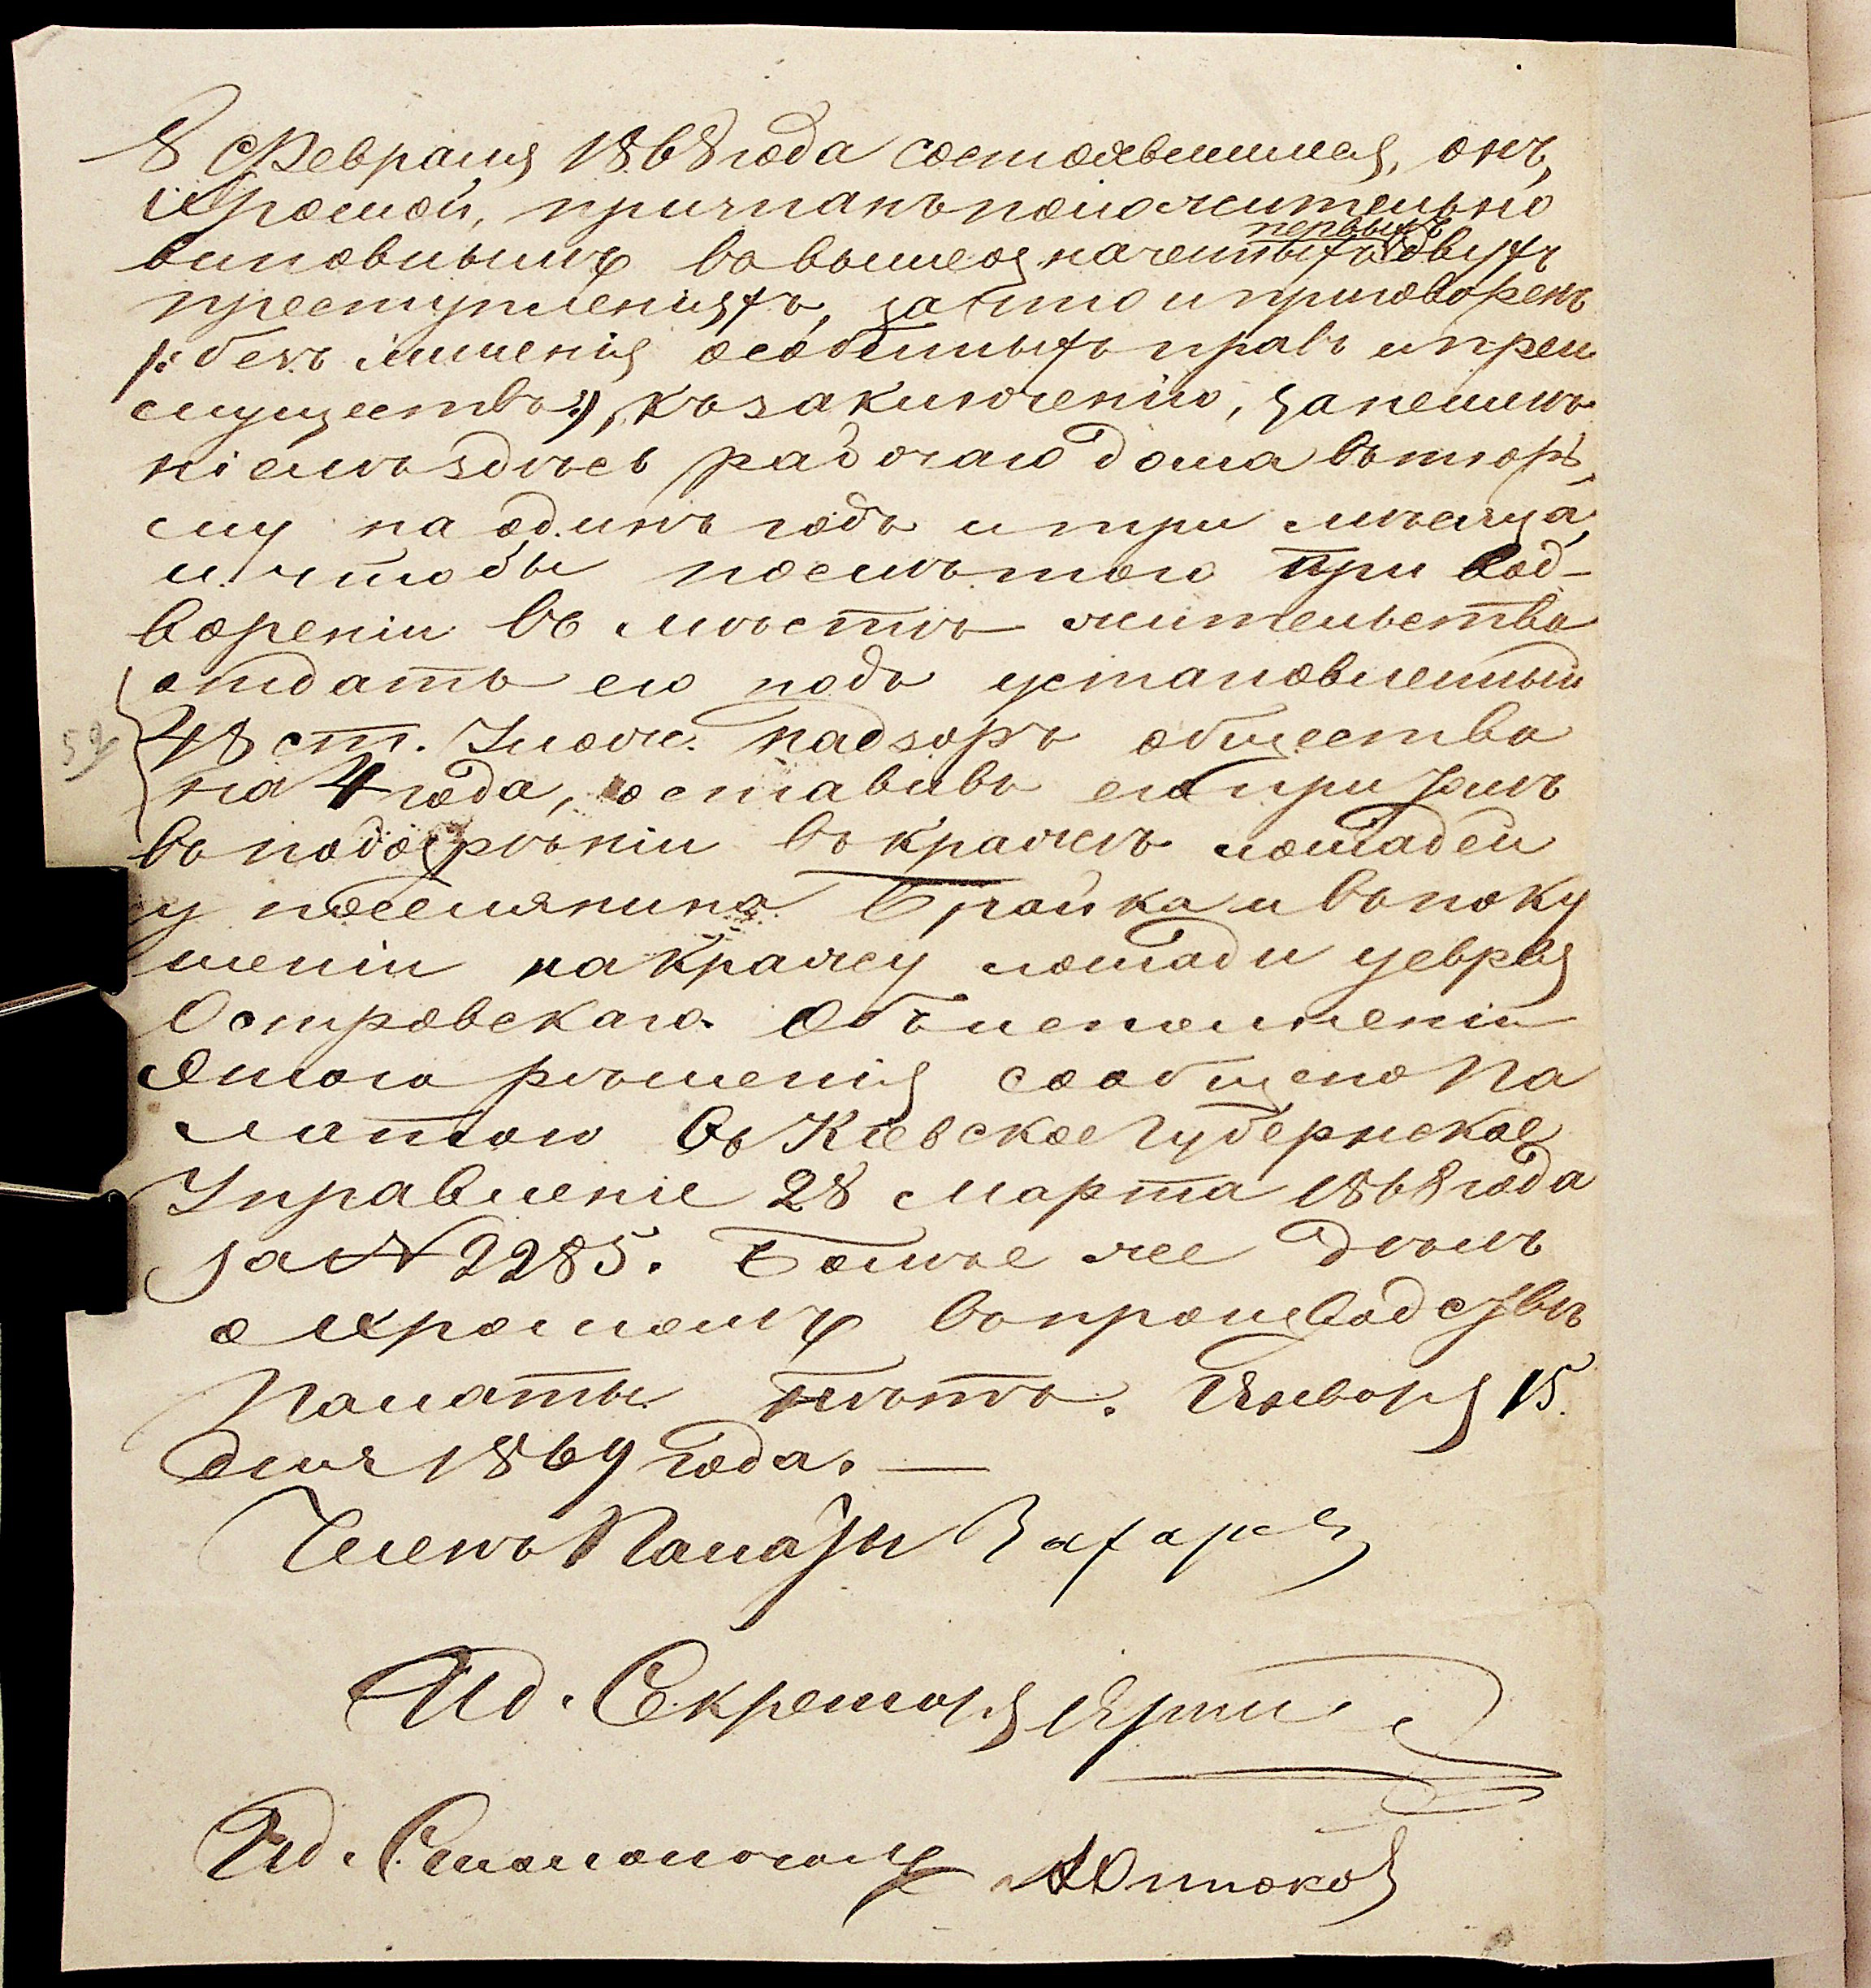 8 Февраля 1868 года состоявшимся, онъ,
Хромой, признанъ положительно
первыхъ
виновнымъ въ вышеозначенныхъ двухъ
преступленіяхъ, за что и приговоренъ
/: безъ лишенія особенныхъ правъ и преи
муществъ :/, къ заключенію, за неимѣ
ніемъ здѣсь рабочаго дома въ тюрь
му на одинъ годъ и три мѣсяца,
и чтобы послѣ того при вод-
вореніи въ мѣстѣ жительства
отдать его подъ установленный
48 ст. Улож. надзоръ общества
на 4 года, оставивъ его при томъ
въ подозрѣніи въ кражѣ лошадей
у поселянина Брайка и въ поку
шеніи на кражу лошади у еврея
Островскаго. Объ исполненіи
этого рѣшенія сообщено Па
латою въ Кіевское Губернское
Управленіе 28 Марта 1868 года
за № 2285. Болѣе же дѣлъ
о Хромомъ въ производствѣ
Палаты нѣтъ. Января 15
дня 1869 года. —
Членъ Палаты Захаров
Ид. Секретаря
Ид. Столоначальн
59